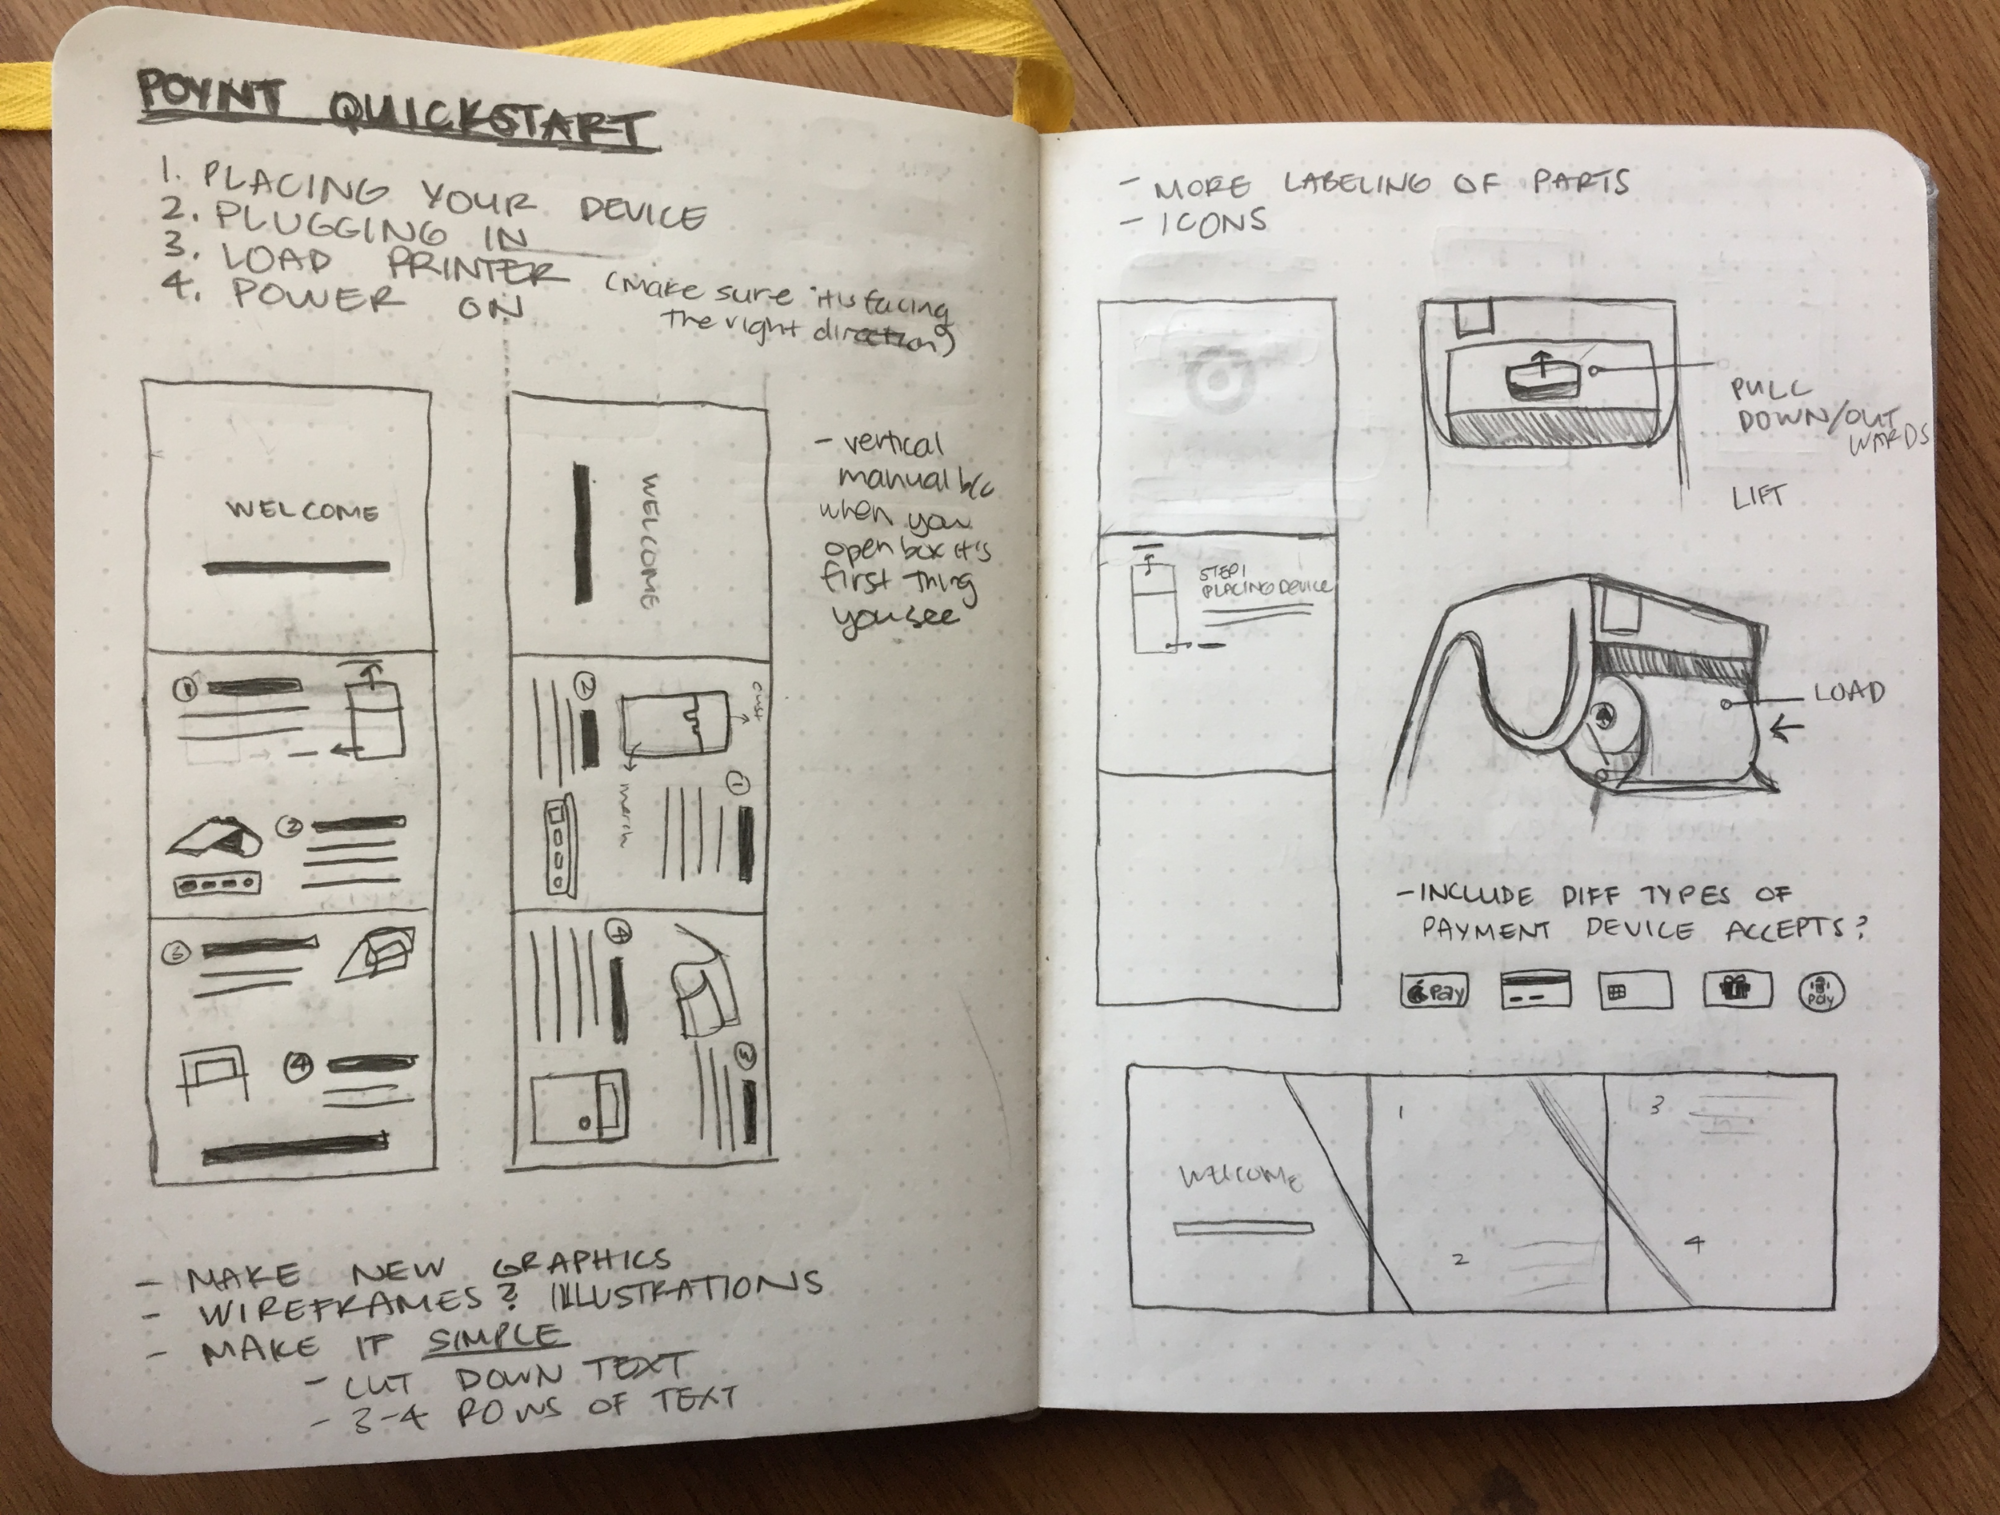 POYNT QUICKSTART
1. PLACING YOUR DEVICE
2. PLUGGING IN
3. LOAD PRINTER (Make sure it is facing
the right direction)
4. POWER ON
WELCOME
1
2
3
4
WELCOME
2
cust
merch
1
4
3
- vertical
manual b/c
when you
open box it's
first thing
you see
- MAKE NEW GRAPHICS
- WIREFRAMES? ILLUSTRATIONS
- MAKE IT SIMPLE
- CUT DOWN TEXT
- 3-4 ROWS OF TEXT
- MORE LABELING OF PARTS
- ICONS
PULL
DOWN/OUT
WARDS
LIFT
STEP 1
PLACING DEVICE
LOAD
- INCLUDE DIFF TYPES OF
PAYMENT DEVICE ACCEPTS?
Pay
Pay
WELCOME
1
2
3
4